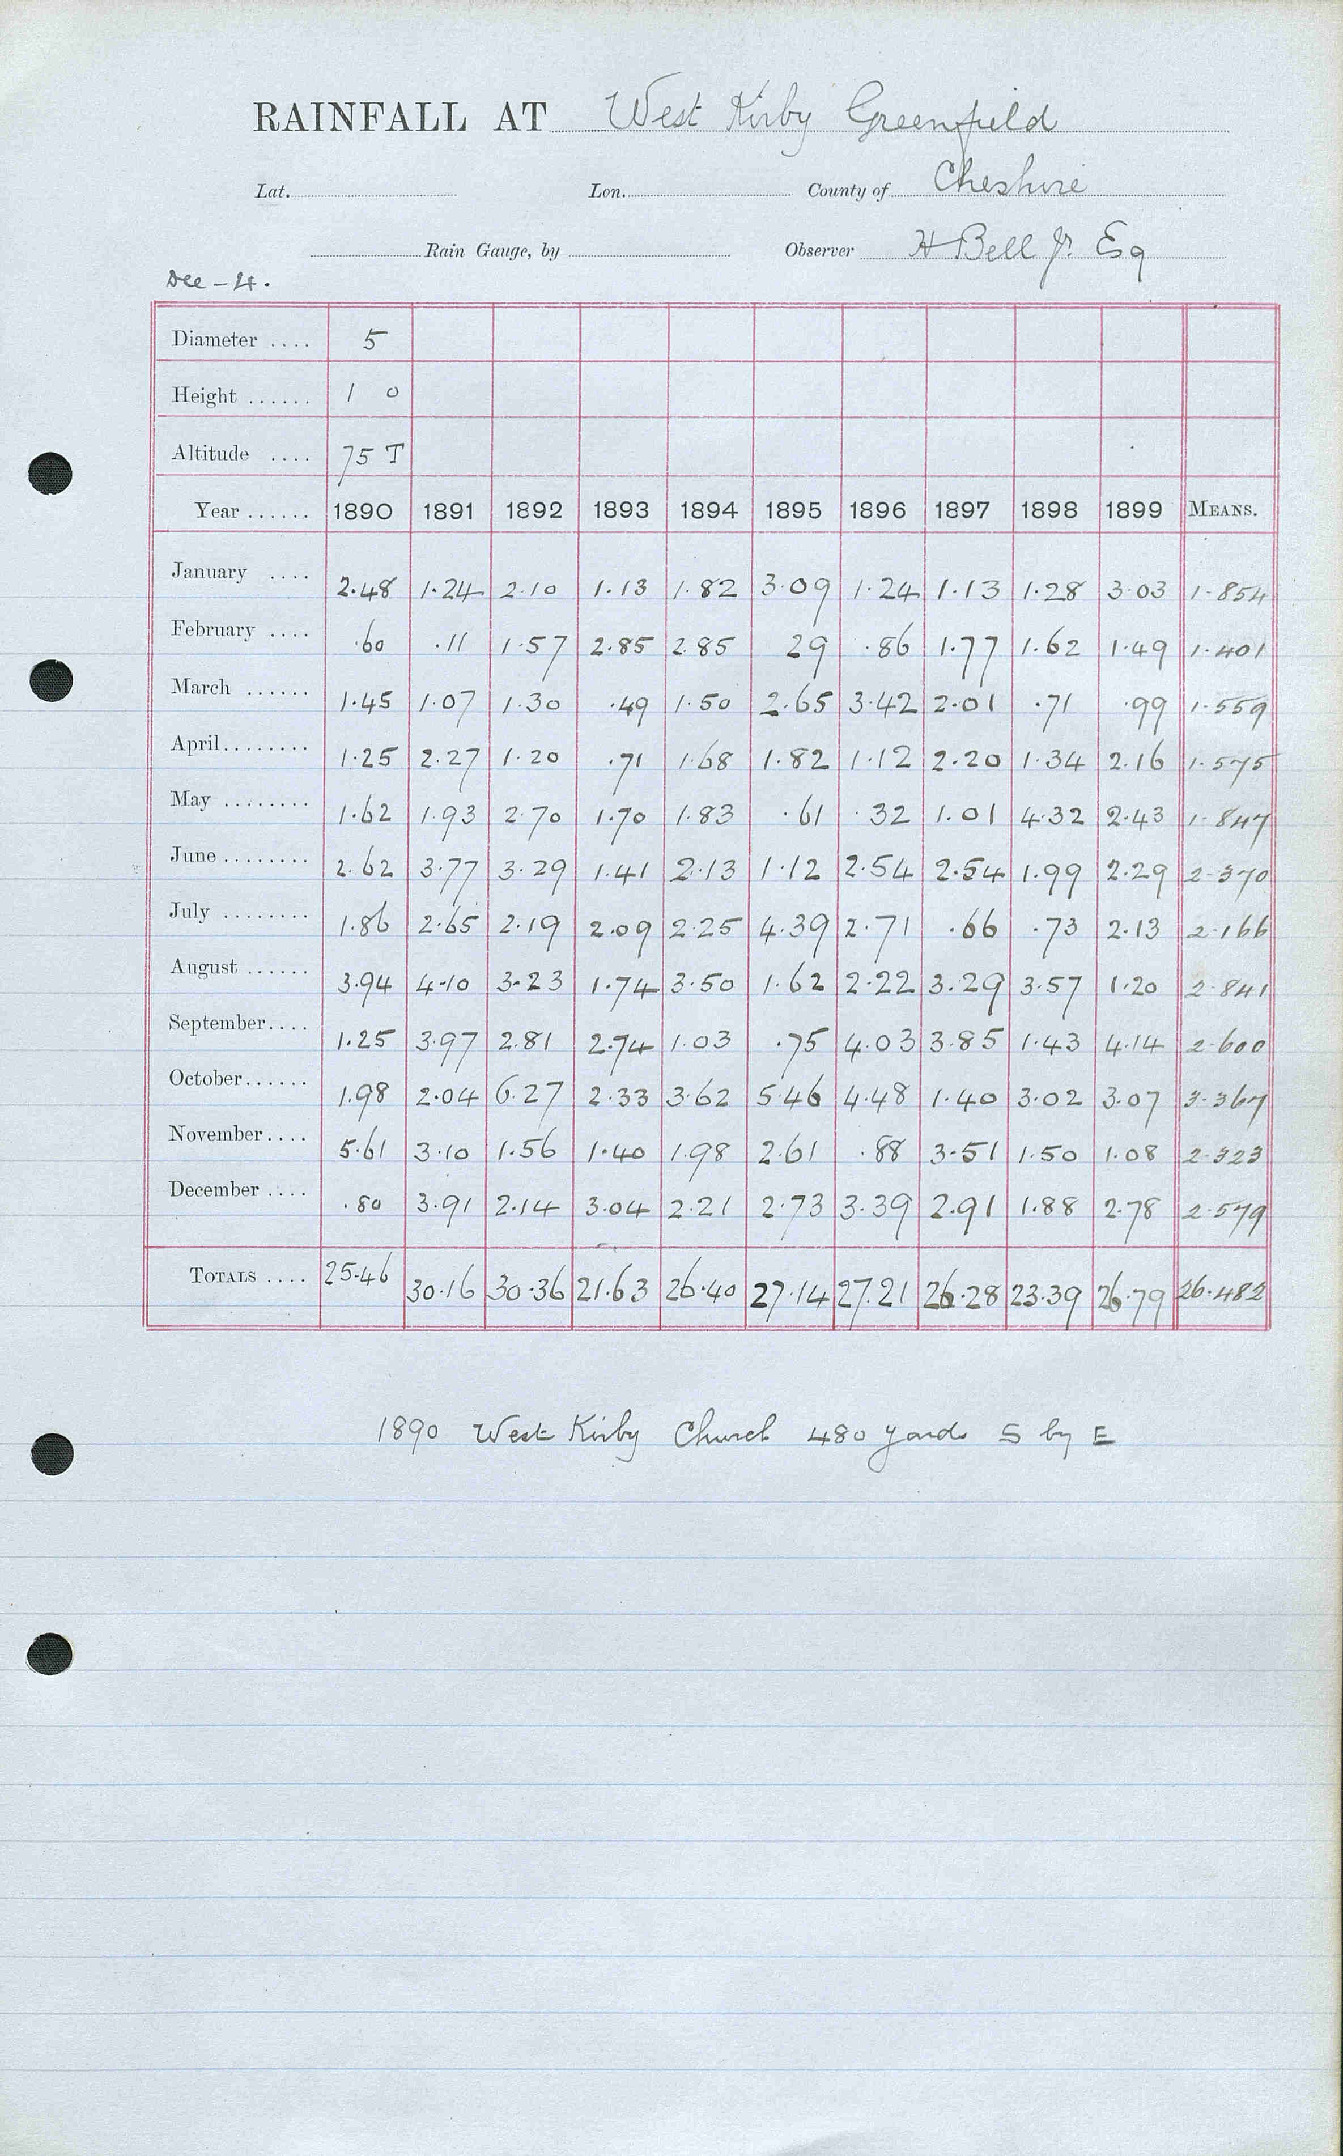 RAINFALL AT West Kirby Greenfield
Lat. Lon. County of Cheshire
Rain Gauge, by Observer H Bell Jr. Esq
Dee - 4.
Diameter .... 5
Height ...... 1 0
Altitude .... 75 T
Year ...... 1890 1891 1892 1893 1894 1895 1896 1897 1898 1899 MEANS.
January .... 2.48 1.24 2.10 1.13 1.82 3.09 1.24 1.13 1.28 3.03 1.854
February .... .60 .11 1.57 2.85 2.85 29 .86 1.77 1.62 1.49 1.401
March ...... 1.45 1.07 1.30 .49 1.50 2.65 3.42 2.01 .71 .99 1.559
April........ 1.25 2.27 1.20 .71 1.68 1.82 1.12 2.20 1.34 2.16 1.575
May ........ 1.62 1.93 2.70 1.70 1.83 .61 .32 1.01 4.32 2.43 1.847
June ........ 2.62 3.77 3.29 1.41 2.13 1.12 2.54 2.54 1.99 2.29 2.370
July ........ 1.86 2.65 2.19 2.09 2.25 4.39 2.71 .66 .73 2.13 2.166
August ...... 3.94 4.10 3.23 1.74 3.50 1.62 2.22 3.29 3.57 1.20 2.841
September.... 1.25 3.97 2.81 2.74 1.03 .75 4.03 3.85 1.43 4.14 2.600
October...... 1.98 2.04 6.27 2.33 3.62 5.46 4.48 1.40 3.02 3.07 3.367
November.... 5.61 3.10 1.56 1.40 1.98 2.61 .88 3.51 1.50 1.08 2.323
December .... .80 3.91 2.14 3.04 2.21 2.73 3.39 2.91 1.88 2.78 2.579
TOTALS .... 25.46 30.16 30.36 21.63 26.40 27.14 27.21 26.28 23.39 26.79 26.482
1890 West Kirby Church 480 yards S by E